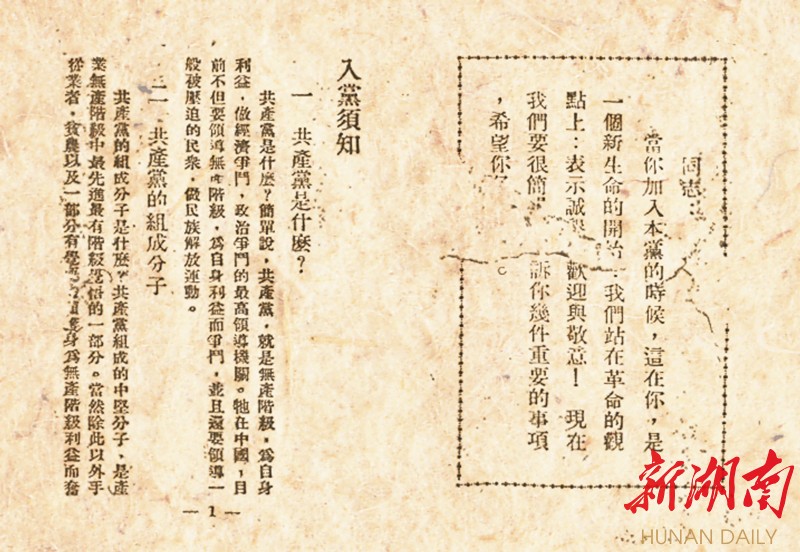 同志：
當你加入本黨的時候，這在你，是
一個新生命的開始：我們站在革命的觀
點上：表示誠 歡迎與敬意！ 現在
我們要很簡 訴你幾件重要的事項
，希望你 。
入黨須知
一 共產黨是什麼？
共產黨是什麼？簡單說，共產黨，就是無產階級，爲自身
利益，做經濟爭鬥，政治爭鬥的最高領導機關。牠在中國，目
前不但要領導無產階級，爲自身利益而爭鬥，並且還要領導一
般被壓迫的民衆，做民族解放運動。
二 共產黨的組成分子
共產黨的組成分子是什麼？共產黨組成的中堅分子，是產
業無產階級中最先進最有階級覺悟的一部分。當然除此以外手
從業者，貧農以及一部分有 身爲無產階級利益而奮
— 1 —
新湖南
HUNAN DAILY